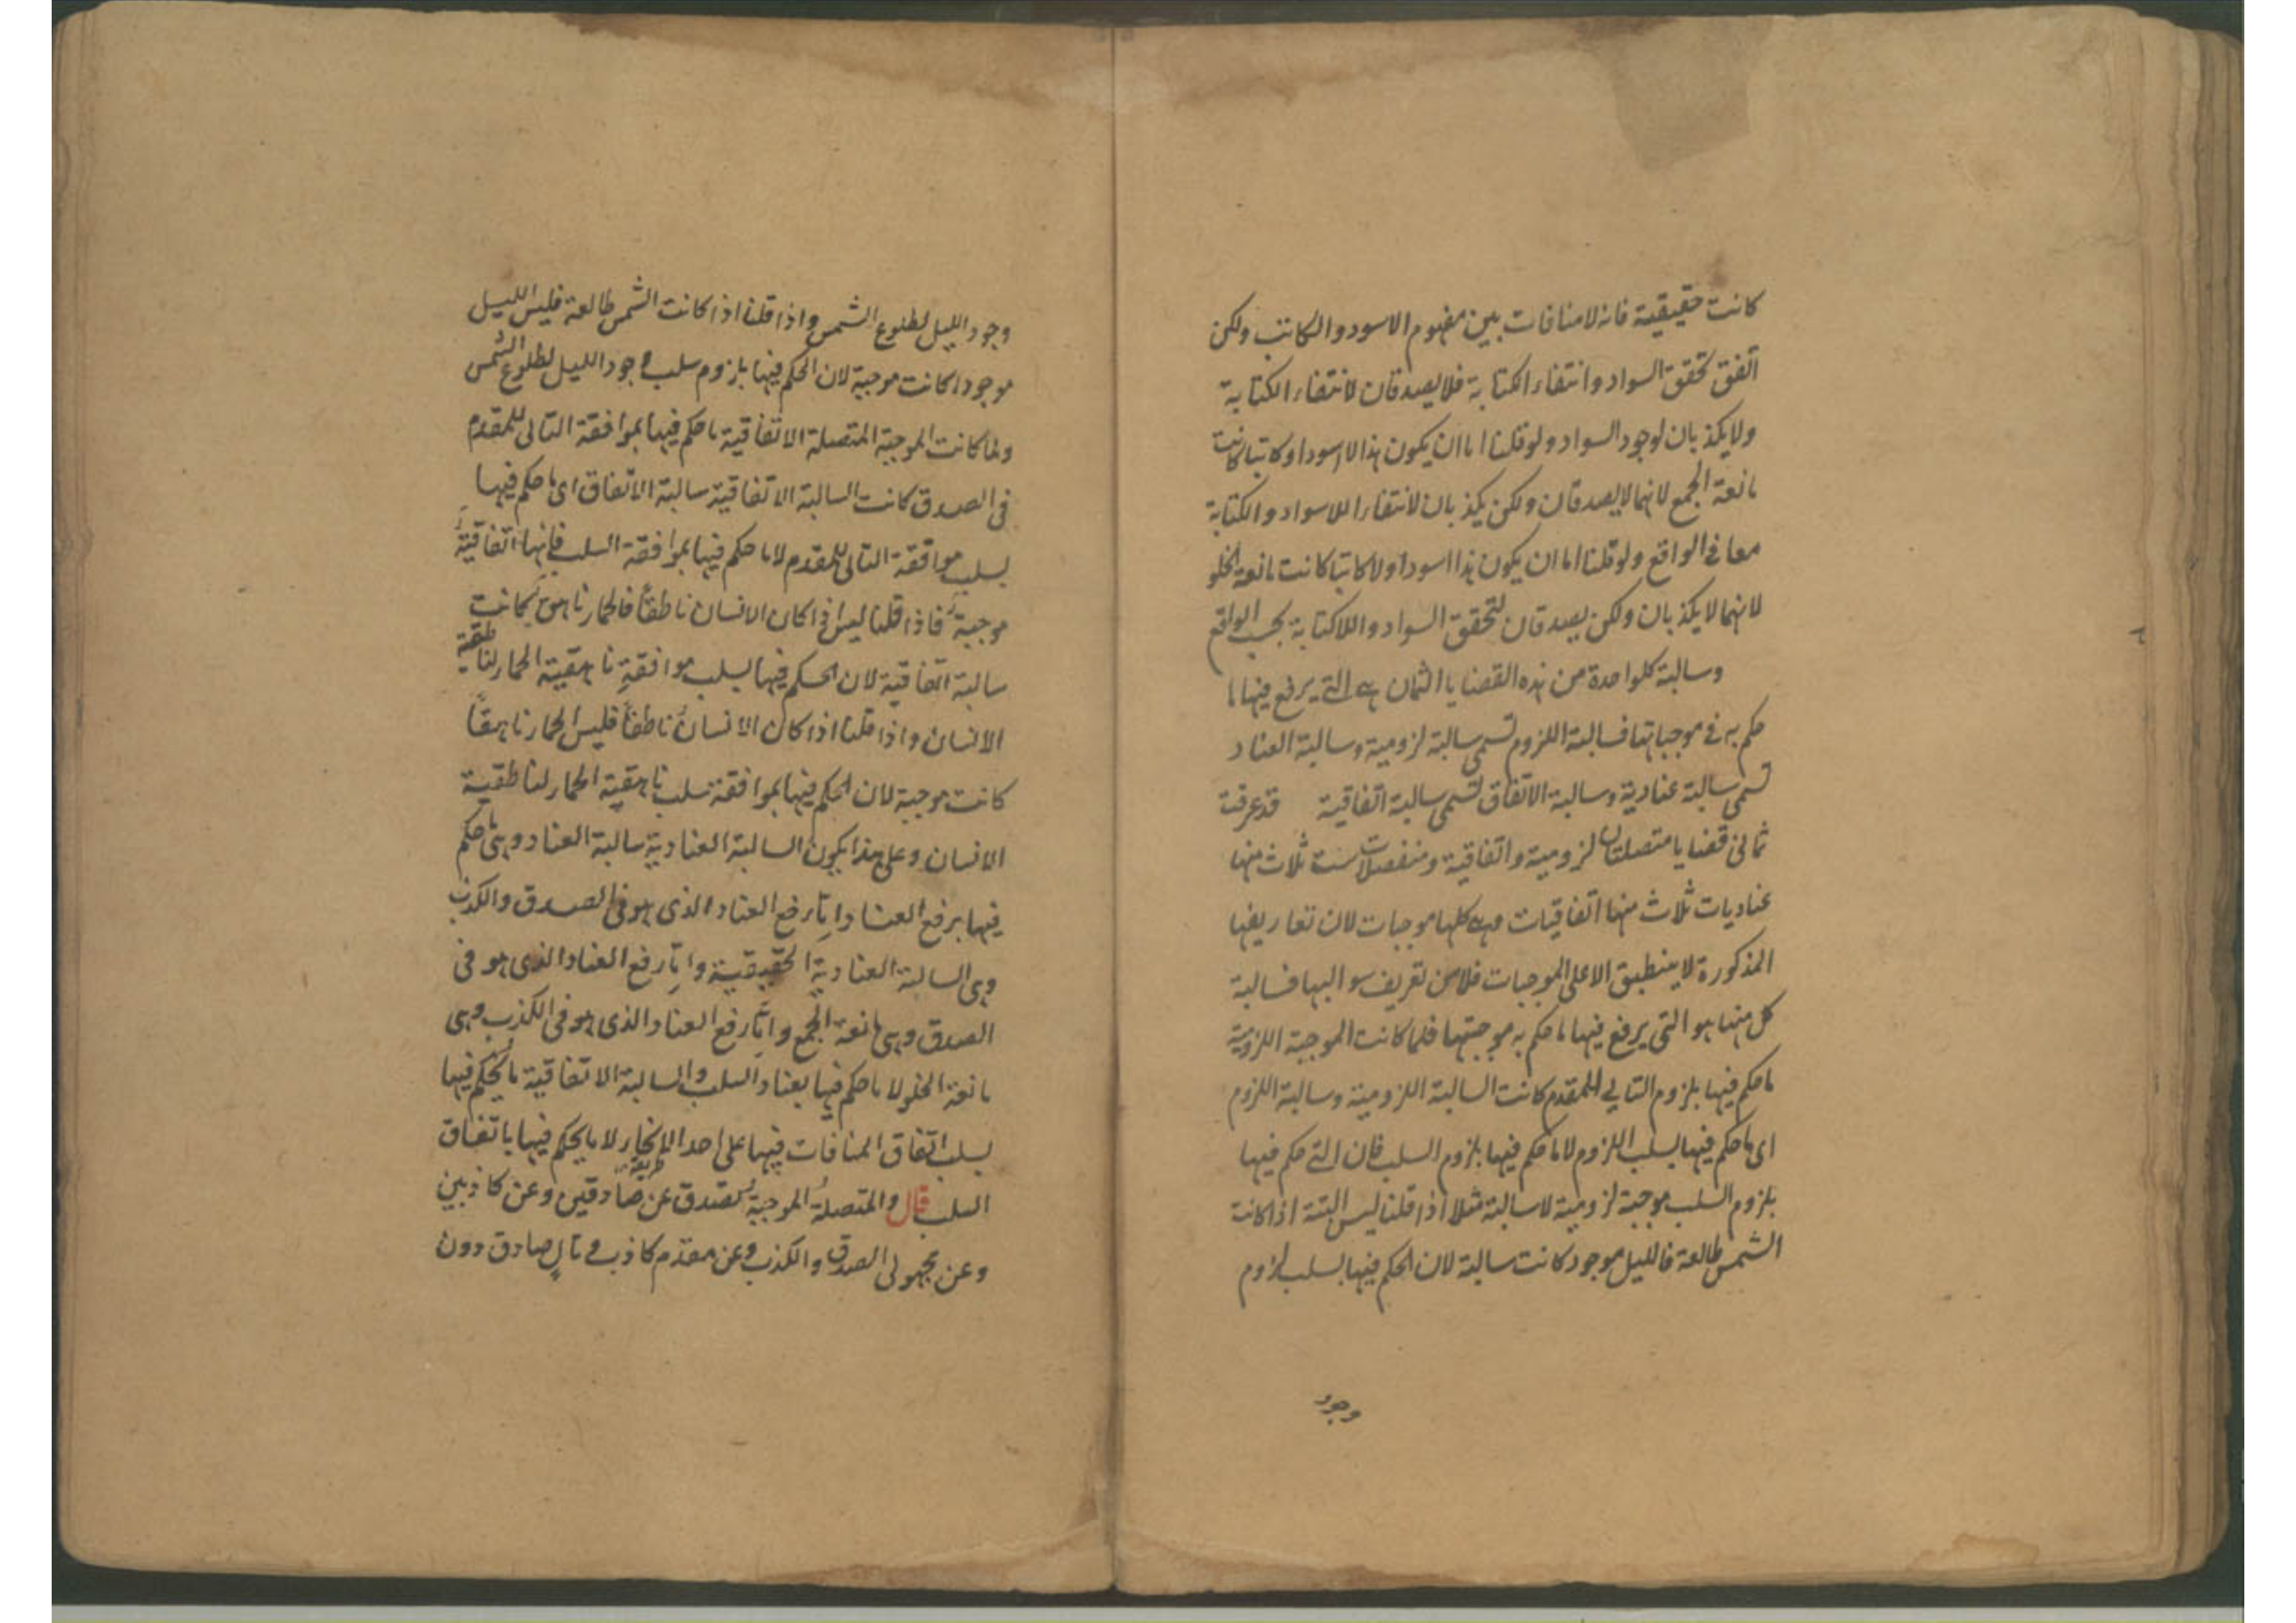 كانت حقيقية فانه لا منافات بين مفهوم الاسود والكاتب ولكن
اتفق تحقق السواد وانتفاء الكتابة فلا يصدقان لانتفاء الكتابة
ولا يكذبان لوجود السواد ولو قلنا اما ان يكون هذا لا اسود او كاتبا كانت
مانعة الجمع لانهما لا يصدقان ولكن يكذبان لانتفاء اللاسواد والكتابة
معا فى الواقع ولو قلنا اما ان يكون هذا اسود او لا كاتبا كانت مانعة الخلو
لانهما لا يكذبان ولكن يصدقان لتحقق السواد واللاكتابة بحسب الواقع
وسالبة كل واحدة من هذه القضايا الثمان هى التى يرفع فيها ما
حكم به فى موجباتها فسالبة اللزوم تسمى سالبة لزومية وسالبة العناد
تسمى سالبة عنادية وسالبة الاتفاق تسمى سالبة اتفاقية قد عرفت
ثمانى قضايا متصلتان لزومية واتفاقية ومنفصلات ست ثلاث منها
عناديات ثلاث منها اتفاقيات وهى كلها موجبات لان تعاريفها
المذكورة لا ينطبق الا على الموجبات فلا من تعريف سوالبها فسالبة
كل منها هو التى يرفع فيها ما حكم به موجبتها فلما كانت الموجبة اللزومية
ما حكم فيها بلزوم التالى للمقدم كانت السالبة اللزومية وسالبة اللزوم
اى ما حكم فيها بسلب اللزوم لا ما حكم فيها بلزوم السلب فان التى حكم فيها
بلزوم السلب موجبة لزومية لا سالبة مثلا اذا قلنا ليس البتة اذا كانت
الشمس طالعة فالليل موجود كانت سالبة لان الحكم فيها بسلب لزوم
وجود
وجود الليل لطلوع الشمس واذا قلنا اذا كانت الشمس طالعة فليس الليل
موجودا كانت موجبة لان الحكم فيها بلزوم سلب وجود الليل لطلوع الشمس
ولما كانت الموجبة المتصلة الاتفاقية ما حكم فيها بموافقة التالى للمقدم
فى الصدق كانت السالبة الاتفاقية سالبة الاتفاق اى ما حكم فيها
بسلب موافقة التالى للمقدم لا ما حكم فيها بموافقة السلب فانها اتفاقية
موجبة فاذا قلنا ليس اذا كان الانسان ناطقاً فالحمار ناهق كانت
سالبة اتفاقية لان الحكم فيها بسلب موافقةِ ناهقية الحمار لناطقية
الانسان واذا قلنا اذا كان الانسانُ ناطقاً فليس الحمار ناهقاً
كانت موجبة لان الحكم فيها بموافقة سلب ناهقية الحمار لناطقية
الانسان وعلى هذا يكون السالبة العنادية سالبة العناد وهى ما حكم
فيها برفع العناد امّا رفع العناد الذى هو فى الصدق والكذب
وهى السالبة العنادية الحقيقية وامّا رفع العناد الذى هو فى
الصدق وهى مانعة الجمع وامّا رفع العناد الذى هو فى الكذب وهى
مانعة الخلو لا ما حكم فيها بعناد السلب والسالبة الاتفاقية ما يُحكم فيها
بسلب اتفاق المنافات فيها على احد الانحاء لا ما يحكم فيها باتفاق
السلب قال والمتصلةُ الموجبةُ تصدق عن صادقين وعن كاذبين
وعن مجهولى الصدق والكذب وعن مقدم كاذب وتالٍ صادق دون